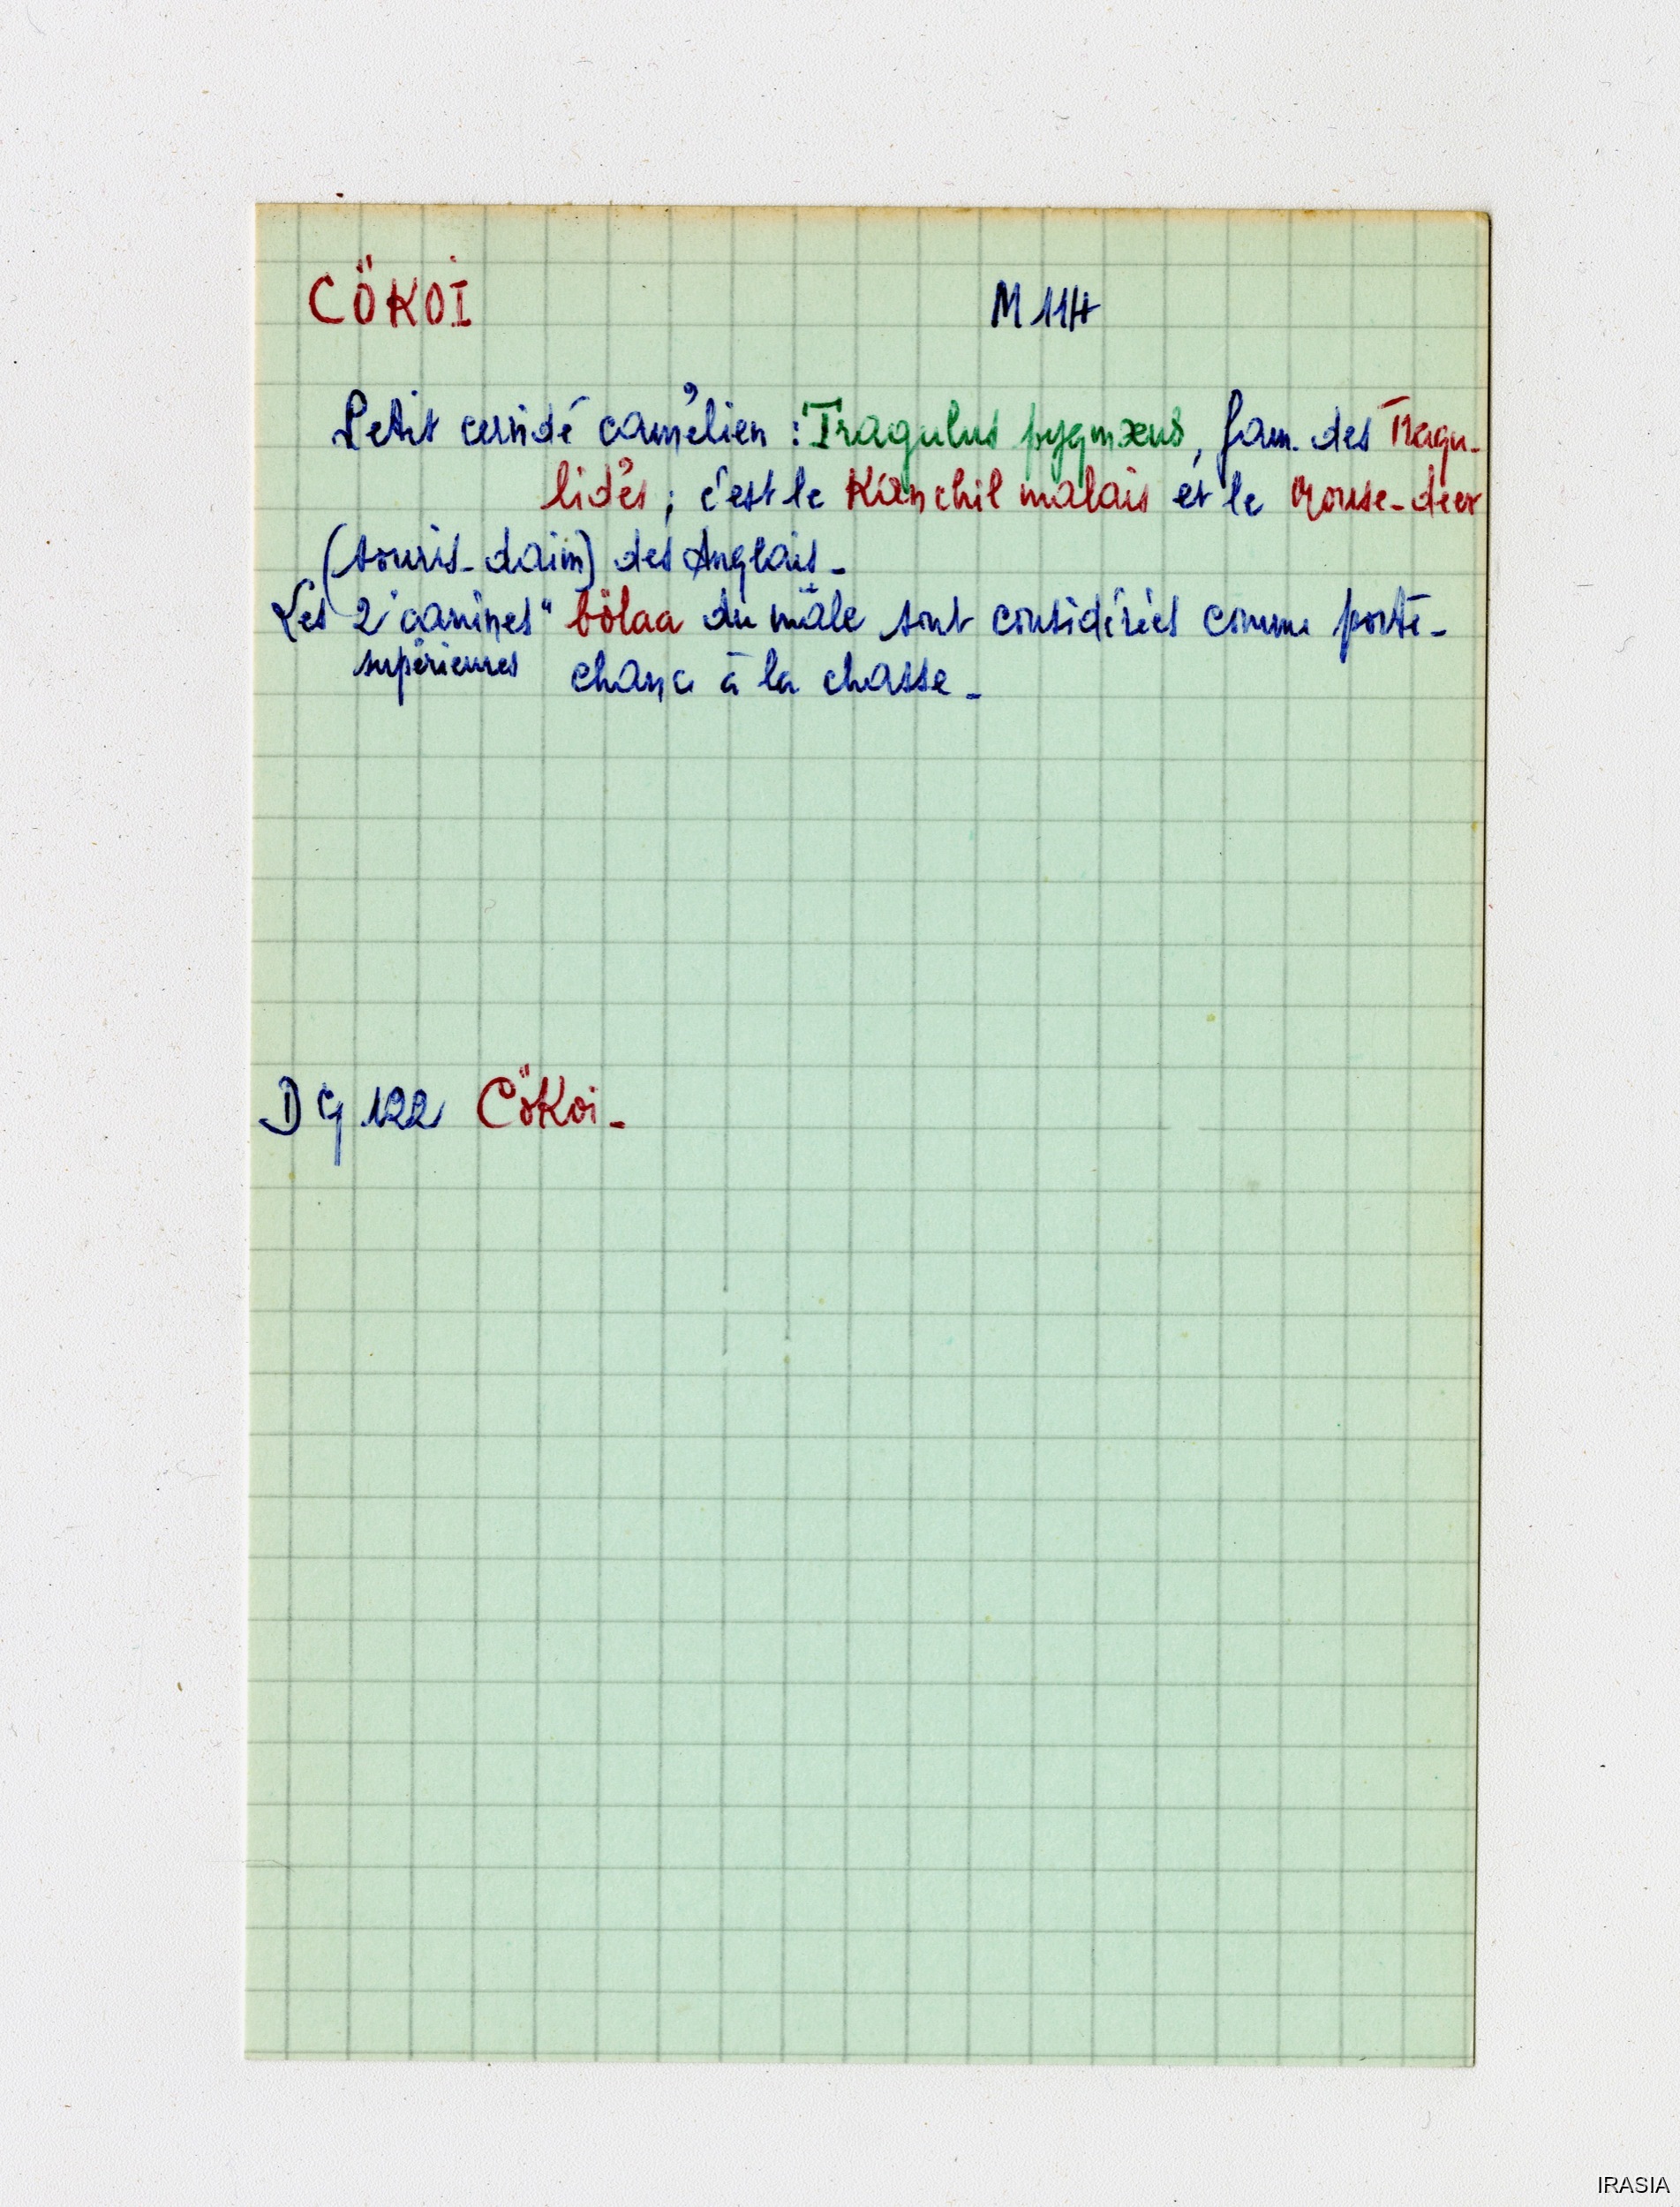 CÖKOI M 114
Petit cervidé camélien : Tragulus pygmæus, fam. des Tragu-
lidés ; c'est le Kanchil malais et le Mouse-deer
(souris-daim) des Anglais -
Les 2 "canines" bölaa du mâle sont considérées comme porte-
supérieures chance à la chasse -
122 CöKoi -
IRASIA